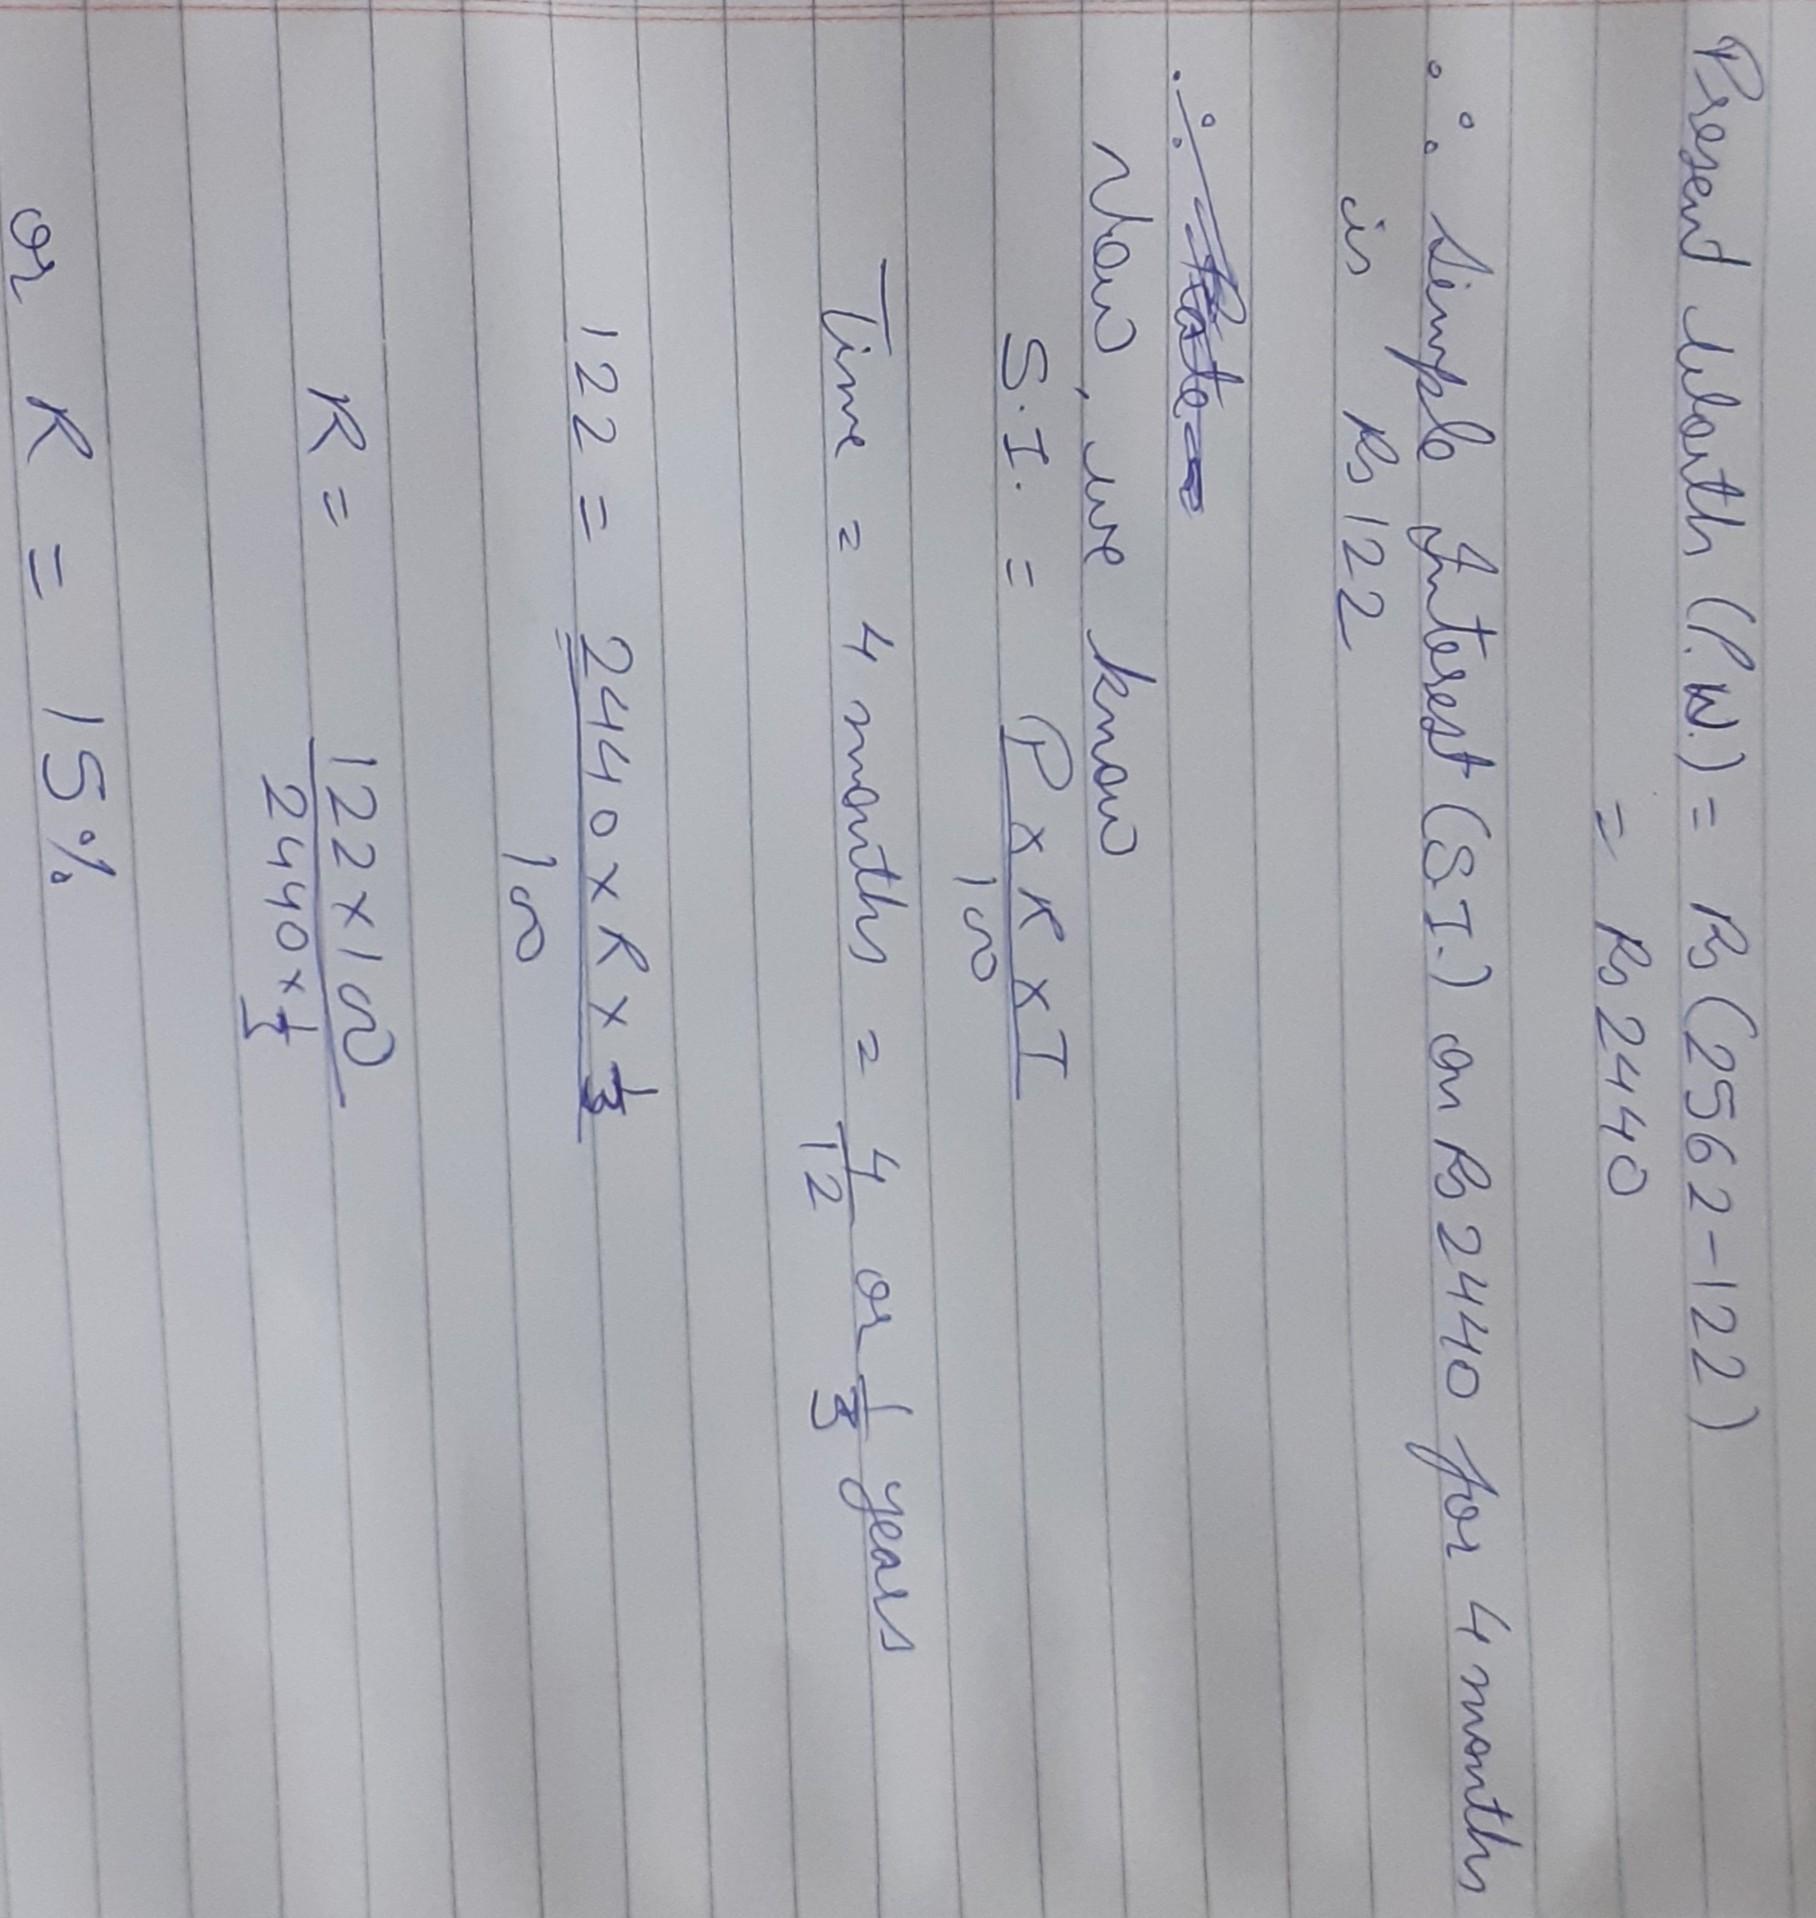 Present Worth (P.W.) = Rs (2562-122)
= Rs 2440
∴ Simple Interest (S.I.) on Rs 2440 for 4 months
is Rs 122
∴ Rate =
Now, we know
S.I. = P x R x T / 100
Time = 4 months = 4/12 or 1/3 years
122 = 2440 x R x 1/3 / 100
R = 122 x 100 / 2440 x 1/3
or R = 15%